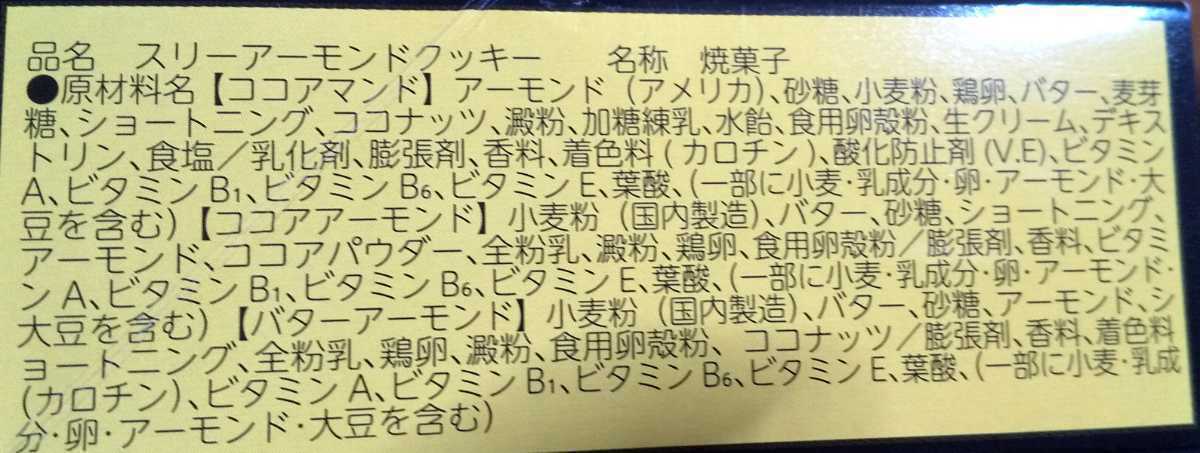 品名　スリーアーモンドクッキー　　名称　焼菓子
●原材料名【ココアマンド】アーモンド（アメリカ）、砂糖、小麦粉、鶏卵、バター、麦芽
糖、ショートニング、ココナッツ、澱粉、加糖練乳、水飴、食用卵殻粉、生クリーム、デキス
トリン、食塩／乳化剤、膨張剤、香料、着色料(カロチン)、酸化防止剤(V.E)、ビタミン
A、ビタミンB₁、ビタミンB₆、ビタミンE、葉酸、(一部に小麦・乳成分・卵・アーモンド・大
豆を含む)【ココアアーモンド】小麦粉（国内製造）、バター、砂糖、ショートニング、
アーモンド、ココアパウダー、全粉乳、澱粉、鶏卵、食用卵殻粉／膨張剤、香料、ビタミ
ンA、ビタミンB₁、ビタミンB₆、ビタミンE、葉酸、(一部に小麦・乳成分・卵・アーモンド・
大豆を含む)【バターアーモンド】小麦粉（国内製造）、バター、砂糖、アーモンド、シ
ョートニング、全粉乳、鶏卵、澱粉、食用卵殻粉、ココナッツ／膨張剤、香料、着色料
(カロチン)、ビタミンA、ビタミンB₁、ビタミンB₆、ビタミンE、葉酸、(一部に小麦・乳成
分・卵・アーモンド・大豆を含む)